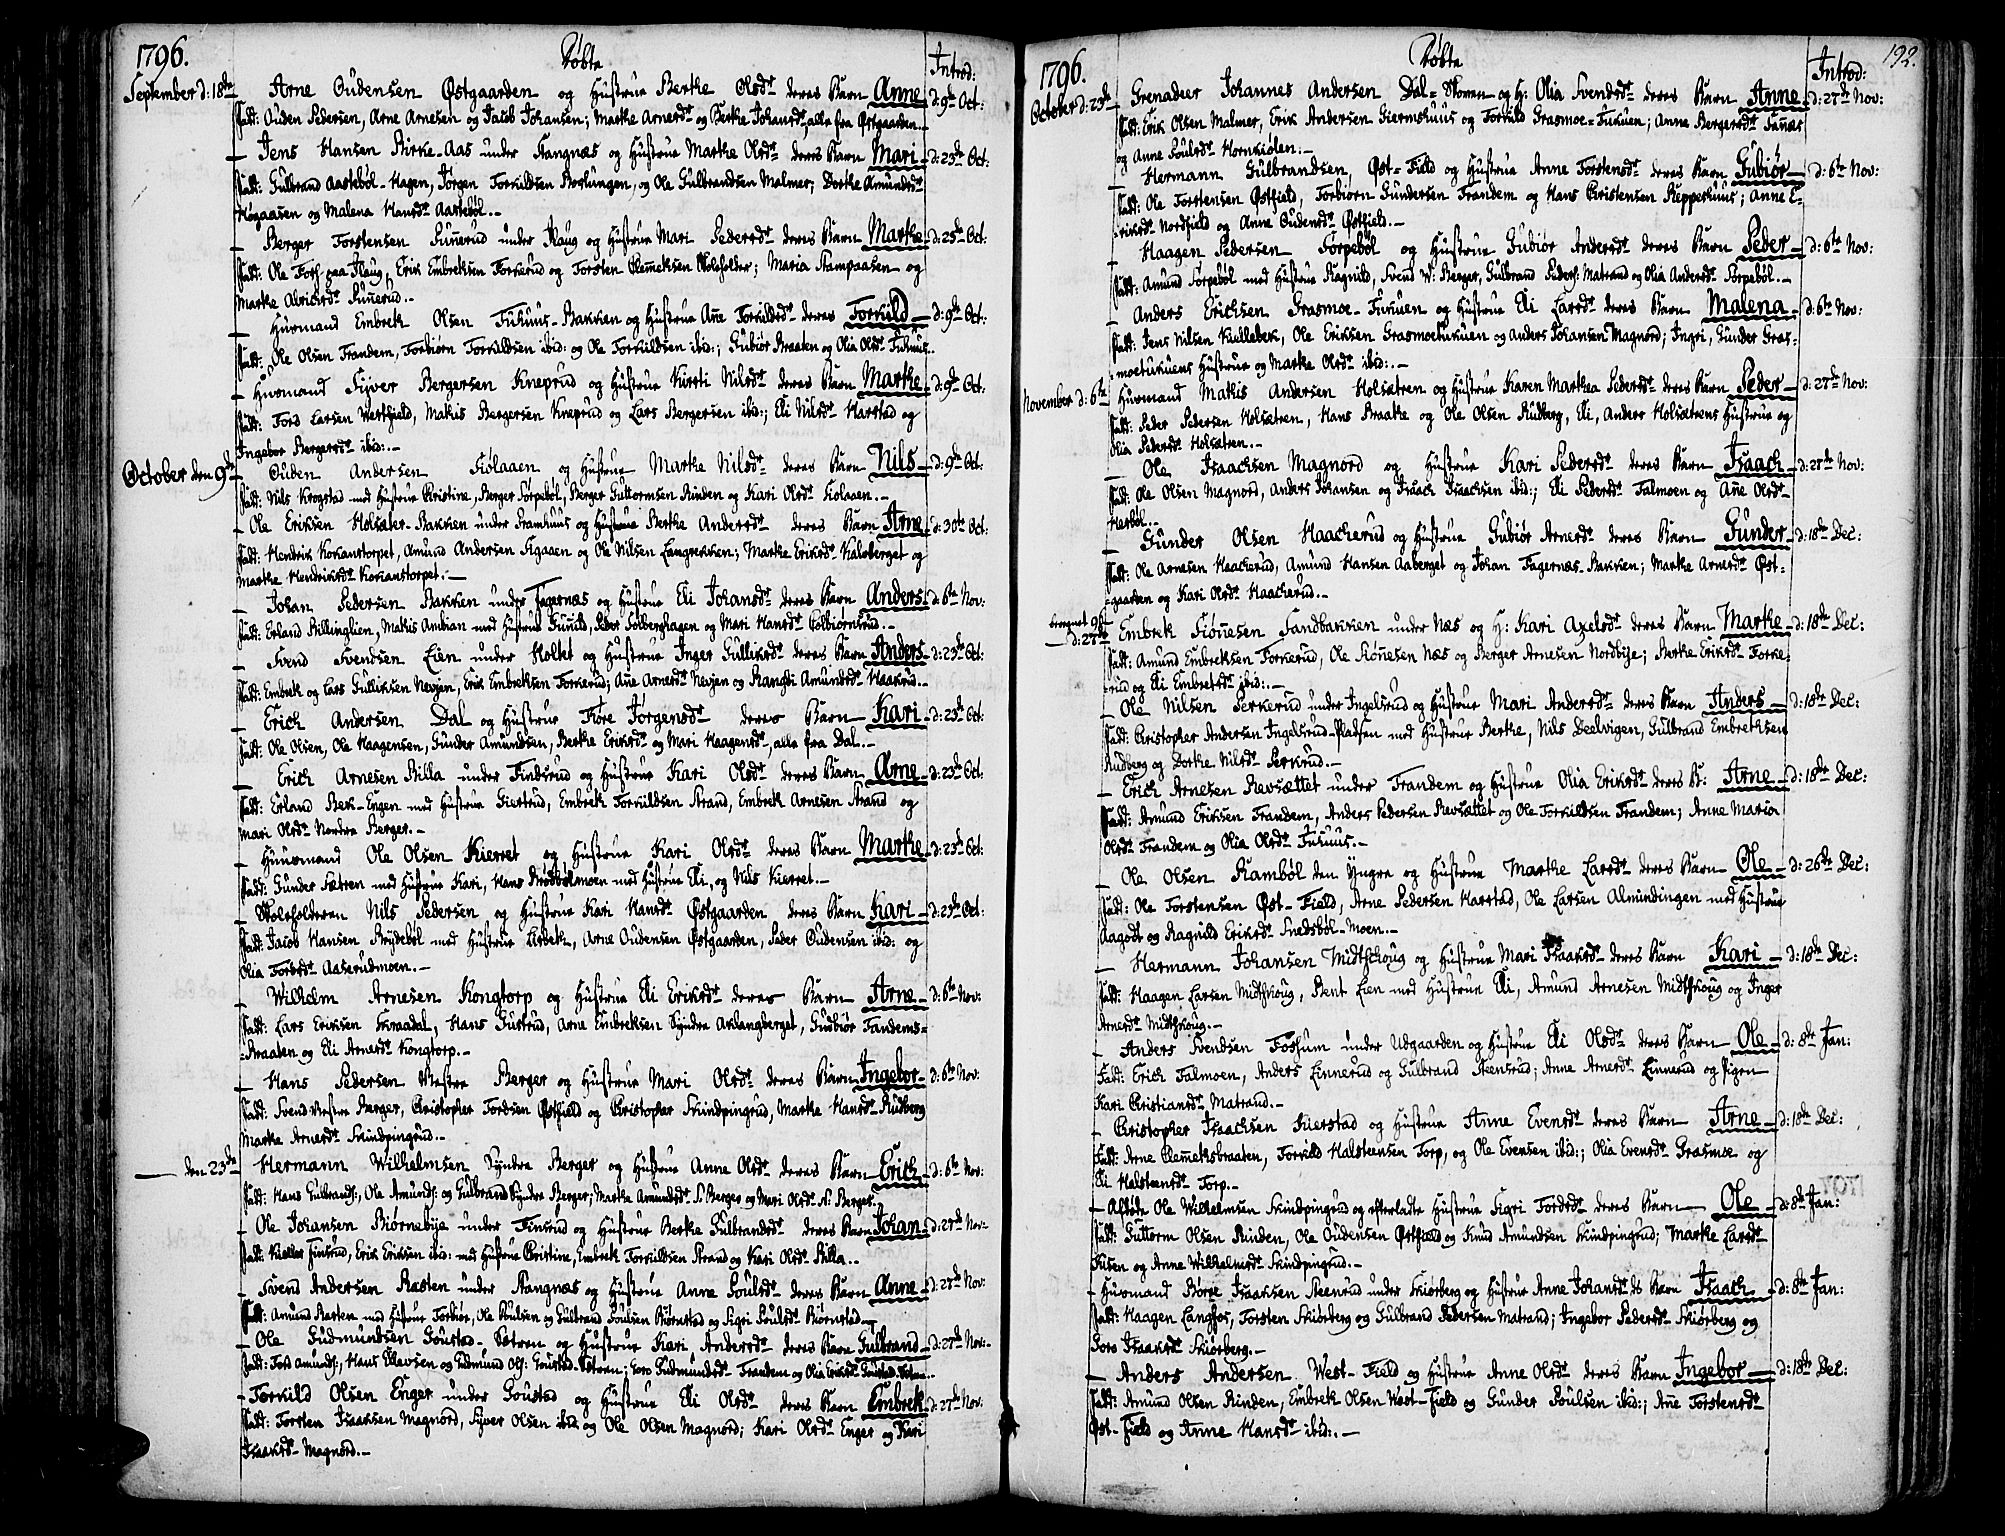 1796.
Døbte
Introd:
September d: 18de
Arne Oudensen Østgaarden og Hustrue Berthe Olsdr deres Barn Anne d: 9de Oct:
Fadd: Ouden Pedersen, Arne Arnesen og Jacob Johansen; Marthe Arnesdr og Berthe Johansdr, alle fra Østgaarden.
Jens Hansen Birke-Aas under Stangnæs og Hustrue Marthe Olsdr deres Barn Mari d: 23de Oct:
Fadd: Gulbrand Aastebøl-Hagen, Jørgen Torkildsen, og Ole Gulbrandsen Malmer; Dorthe Amundsdr
Høgaasen og Malena Hansdr Aastebøl.
Berger Torstensen under Haug og Hustrue Mari Pedersdr deres Barn Marthe d: 23de Oct:
Fadd: Ole paa Haug, Erik Embreksen Torkerud og Torsten Clemetsen Skoleholder; Maria Stampaasen og
Marthe
Huusmand Embrek Olsen Tuhuus-Bakken og Hustrue Añe Torkildsdr deres Torkild d: 9de Oct:
Fadd: Ole Olsen Trandem, Torbiørn Torkildsen ibid: og Ole Torkildsen ibid:; Gubiør Braaten og Olia Olsdr Tuhuus.
Huusmand Syver Bergersen Kneprud og Hustrue Kirsti Nilsdr deres Barn Marthe d: 9de Oct:
Fadd: Tord Larsen Westfield, Mathis Bergersen Kneprud og Lars Bergersen ibid:; Eli Nilsdr Harstad og
Ingebor Bergersdr ibid:
October den 9de
Ouden Andersen Fiølaaen og Hustrue Marthe Nilsdr deres Barn Nils d: 9de Oct:
Fadd: Nils Krogstad med Hustrue Christine, Berger Sørpebøl, Berger Guttormsen Rinden og Kari Olsdr Fiolaaen.
Ole Eriksen Holsæter-Bakken under Framhuus og Hustrue Berthe Andersdr deres Barn Arne d: 30te Oct:
Fadd: Hendrik Kokanstorpet, Amund Andersen Sigaaen og Ole Nilsen Langrekken; Marthe Eriksdr Kalvberget og
Marthe Hendriksdr Kokanstorpet.
Johan Pedersen Bakken under Fagernæs og Hustrue Eli Johansdr deres Barn Anders d: 6te Nov:
Fadd: Erland Billinglien, Mathis Ambian med Hustrue Guñild, Peder Solberghagen og Mari Hansdr Colbiørnsrud.
Svend Svendsen Lien under Holtet og Hustrue Inger Gulliksdr deres Barn Anders d: 23de Oct:
Fadd: Embrek og Lars Gulliksen Nevjen, Erik Embreksen Torkerud; Añe Arnesdr Nevjen og Rangdi Amundsdr Haakrud.
Erich Andersen Dal og Hustrue Tore Jørgensdr deres Barn Kari d: 23de Oct:
Fadd: Ole Olsen, Ole Haagensen, Gunder Amundsen, Berthe Eriksdr og Mari Haagensdr, alle fra Dal.
Erich Arnesen Billa under Findsrud og Hustrue Kari Olsdr deres Barn Arne d: 23de Oct:
Fadd: Erland Bek-Engen med Hustrue Giertrud, Embrek Torkildsen Strand, Embrek Arnesen Strand og
Mari Olsdr Nordre Berger.
Huusmand Ole Olsen Kierret og Hustrue Kari Olsdr deres Barn Marthe d: 23de Oct:
Fadd: Gunder Sætren med Hustrue Kari, Hans Brødbølmoen med Hustrue Eli, og Nils Kierret.
Skoleholderen Nils Pedersen og Hustrue Kari Hansdr Østgaarden deres Barn Kari d: 23de Oct:
Fadd: Jacob Hansen Brydebøl med Hustrue Lisbeth, Arne Oudensen Østgaarden, Peder Oudensen ibid: og
Olia Tordsdr Aaserudmoen.
Wilhelm Arnesen Kongtorp og Hustrue Eli Eriksdr deres Barn Arne d: 6te Nov:
Fadd: Lars Eriksen Skraadal, Hans Gustrud, Arne Embreksen Syndre Aklangberget, Gubiør Tandems-
Braaten og Eli Arnesdr Kongtorp.
Hans Pedersen Westre Berger og Hustrue Mari Olsdr deres Barn Ingebor d: 6te Nov:
Fadd: Svend Westre Berger, Christopher Tordsen Østfield og Christopher Skindpingrud, Marthe Hansdr Rudberg
Marthe Arnesdr Skindpingrud.
den 23de
Hermann Wilhelmsen Syndre Berger og Hustrue Anne Olsdr deres Barn Erich d: 6te Nov:
Fadd: Hans Gulbrands:, Ole Amunds: og Gulbrand Syndre Berger; Marthe Amundsdr S: Berger og Mari Olsdr N: Berget.
Ole Johansen Biørnebye under Finsrud og Hustrue Berthe Gulbrandsdr deres Barn Johan d: 27de Nov:
Fadd: Kietler Finsrud, Erik Eriksen ibid: med Hustrue Christine, Embrek Torkildsen Strand og Kari Olsdr Billa.
Svend Andersen Rasten under Stangnæs og Hustrue Anne Poulsdr deres Barn Anne d: 27de Nov:
Fadd: Amund Rasten med Hustrue Torbiør, Ole Poulsen og Gulbrand Poulsen Biørnstad og Sigri Poulsdr Biørnstad.
Ole Gudmundsen Goustad-Sætren og Hustrue Kari Andersdr deres Barn Gulbrand d: 27de Nov:
Fadd: Tord Amunds:, Hans Ellevsen og Gudmund Ols: Goustad-Sætren; Goro Gudmundsdr Trandem og Olia Eriksdr Goustad-Sætren.
Torkild Olsen Enger under Goustad og Hustrue Eli Olsdr deres Barn Embrek d: 27de Nov:
Fadd: Torsten Isaaksen Magnord, Syver Olsen ibid: og Ole Olsen Magnord; Kari Olsdr Enger og Kari
Isaaksdr Magnord.
1796.
Døbte
Introd:
192.
October d: 23de
Grenadeer Johannes Andersen Dal-Skoven og H: Olia Svendsdr deres Barn Anne d: 27de Nov:
Fadd: Erik Olsen Malmer, Erik Andersen Giermshuus og Torkild Grasmoe-Tukuen; Anne Bergersdr
og Anne Poulsdr Hornkiølen.
Hermann Gulbrandsen, Øst-Field og Hustrue Anne Torstensdr deres Barn Gubiør d: 6te Nov:
Fadd: Ole Torstensen Østfield, Torbiørn Gundersen Trandem og Hans Christensen Reppeshuus; Anne E-
riksdr Nordfield og Anne Oudensdr Østfield.
Haagen Pedersen Sørpebøl og Hustrue Gubiør Andersdr deres Barn Peder d: 6te Nov:
Fadd: Amund Sørpebøl med Hustrue Ragnild, Svend W: Berger, Gulbrand Peders: Matrand og Olia Andersdr Sørpebøl.
Anders Erichsen Grasmoe-Tukuen og Hustrue Eli Larsdr deres Barn Malena d: 6te Nov:
Fadd: Jens Nilsen Kullebek, Ole Eriksen Grasmoetukuen og Anders Johansen Magnord; Ingri, Gunder Gras-
moetukuens Hustrue og Marthe Olsdr ibid:
November d: 6te
Huusmand Mathis Andersen Holsætren og Hustrue Karen Marthea Pedersdr deres Barn Peder d: 27de Nov:
Fadd: Peder Pedersen Holsætren, Hans Braate og Ole Olsen Rudberg, Eli, Anders Holsætrens Hustrue og
Olia Pedersdr Holsætren.
Ole Isaachsen Magnord og Hustrue Kari Pedersdr deres Barn Isaach d: 27de Nov:
Fadd: Ole Olsen Magnord, Anders Johansen og Isaach Isaachsen ibid:; Eli Pedersdr Talmoen og Añe Olsdr
Herbøl.
Gunder Olsen Haacherud og Hustrue Gubiør Arnesdr deres Barn Gunder d: 18de Dec:
Fadd: Ole Arnesen Haacherud, Amund Hansen Aaberget og Johan Fagernæs-Bakken; Marthe Arnesdr Øst-
gaarden og Kari Olsdr Haacherud.
d: 27de
Embrek Siøñesen Sandbakken under Næs og H: Kari Axelsdr deres Barn Marthe d: 18de Dec:
Fadd: Amund Embreksen Torkerud, Ole Siøñesen Næs og Berger Arnesen Nordbye; Berthe Eriksdr Torke-
rud og Eli Embreksdr ibid:
Ole Nilsen Perkerud under Ingelsrud og Hustrue Mari Andersdr deres Barn Anders d: 18de Dec:
Fadd: Christopher Andersen Ingelsrud-Pladsen med Hustrue Berthe, Nils Deelvigen, Gulbrand Embrechtsen
Rudberg og Dorthe Nilsdr Perkrud.
Erich Arnesen Revsættet under Trandem og Hustrue Olia Eriksdr deres B: Arne d: 18de Dec:
Fadd: Amund Eriksen Trandem, Anders Pedersen Revsættet og Ole Torkildsen Trandem; Anne Maria
Olsdr Trandem og Olia Olsdr Tuhuus.
Ole Olsen Rambøl den Yngre og Hustrue Marthe Larsdr deres Barn Ole d: 26de Dec:
Fadd: Ole Torstensen Øst-Field, Arne Pedersen Harstad, Ole Larsen Almindingen med Hustrue
Aagodt og Ragnild Eriksdr Snedsbøl-Moen.
Hermann Johansen Midtskoug og Hustrue Mari Isaaksdr deres Barn Kari d: 18de Dec:
Fadd: Haagen Larsen Midtskoug, Bent Lien med Hustrue Eli, Amund Arnesen Midtskoug og Inger
Arnesdr Midtskoug.
Anders Svendsen Fossum under Udgaarden og Hustrue Eli Olsdr deres Barn Ole d: 8de Jan:
Fadd: Erich Talmoen, Anders Linnerud og Gulbrand Steensrud; Anne Arnesdr Linnerud og Pigen
Kari Christiansdr Matrand.
Christopher Isaachsen Fierstad og Hustrue Anne Evensdr deres Barn Arne d: 18de Dec:
Fadd: Arne Clemetsbraaten, Torkild Halsteensen Torp, og Ole Evensen ibid:; Olia Evensdr Grasmoe og
Eli Halsteensdr Torp.
Afdøde Ole Wilhelmsen Skindpingrud og efterladte Hustrue Sigri Tordsdr deres Barn Ole d: 8de Jan:
Fadd: Guttorm Olsen Rinden, Ole Oudensen Østfield og Knud Amundsen Skindpingrud; Marthe Larsdr
og Anne Wilhelmsdr Skindpingrud.
Huusmand Børge Isaaksen Steenrud under Skiørberg og Hustrue Anne Johansdr ds Barn Isaach d: 8de Jan:
Fadd: Haagen Langfos, Torsten Skiørberg og Gulbrand Pedersen Matrand; Ingebor Pedersdr Skiørberg og
Goro Isaaksdr Skiørberg.
Anders Andersen West-Field og Hustrue Anne Olsdr deres Barn Ingebor d: 18de Dec:
Fadd: Amund Olsen Rinden, Embrek Olsen West-Field og Gunder Poulsen ibid:; Añe Torstensdr
Øst-Field og Anne Hansdr ibid: